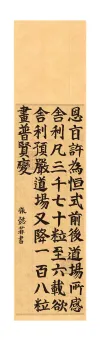 恩旨許為恒式前後道場所感
舍利凡三千七十粒至六載欲
舍利預嚴道場又降一百八粒
畫普賢變
張誌茹書